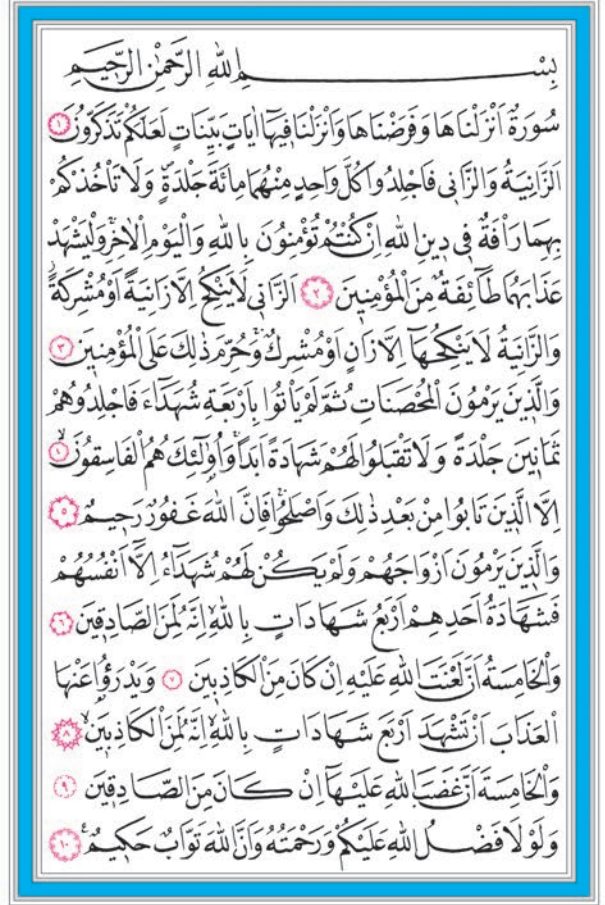 بِسْمِ اللهِ الرَّحْمٰنِ الرَّحِيمِ
سُورَةٌ اَنْزَلْنَاهَا وَفَرَضْنَاهَا وَاَنْزَلْنَا فِيهَٓا اٰيَاتٍ بَيِّنَاتٍ لَعَلَّكُمْ تَذَكَّرُونَ ١
اَلزَّانِيَةُ وَالزَّانِى فَاجْلِدُوا كُلَّ وَاحِدٍ مِنْهُمَا مِائَةَ جَلْدَةٍۖ وَلَا تَاْخُذْكُمْ
بِهِمَا رَاْفَةٌ فِى دِينِ اللهِ اِنْ كُنْتُمْ تُؤْمِنُونَ بِاللهِ وَالْيَوْمِ الْاٰخِرِۚ وَلْيَشْهَدْ
عَذَابَهُمَا طَٓائِفَةٌ مِنَ الْمُؤْمِنِينَ ٢ اَلزَّانِى لَا يَنْكِحُ اِلَّا زَانِيَةً اَوْ مُشْرِكَةًۘ
وَالزَّانِيَةُ لَا يَنْكِحُهَٓا اِلَّا زَانٍ اَوْ مُشْرِكٌۚ وَحُرِّمَ ذٰلِكَ عَلَى الْمُؤْمِنِينَ ٣
وَالَّذِينَ يَرْمُونَ الْمُحْصَنَاتِ ثُمَّ لَمْ يَاْتُوا بِاَرْبَعَةِ شُهَدَٓاءَ فَاجْلِدُوهُمْ
ثَمَانِينَ جَلْدَةً وَلَا تَقْبَلُوا لَهُمْ شَهَادَةً اَبَدًاۚ وَاُو۬لٰٓئِكَ هُمُ الْفَاسِقُونَۙ
اِلَّا الَّذِينَ تَابُوا مِنْ بَعْدِ ذٰلِكَ وَاَصْلَحُواۚ فَاِنَّ اللهَ غَفُورٌ رَحِيمٌ ٥
وَالَّذِينَ يَرْمُونَ اَزْوَاجَهُمْ وَلَمْ يَكُنْ لَهُمْ شُهَدَٓاءُ اِلَّٓا اَنْفُسُهُمْ
فَشَهَادَةُ اَحَدِهِمْ اَرْبَعُ شَهَادَاتٍ بِاللهِۙ اِنَّهُ لَمِنَ الصَّادِقِينَ ٦
وَالْخَامِسَةُ اَنَّ لَعْنَتَ اللهِ عَلَيْهِ اِنْ كَانَ مِنَ الْكَاذِبِينَ ٧ وَيَدْرَؤُا عَنْهَا
الْعَذَابَ اَنْ تَشْهَدَ اَرْبَعَ شَهَادَاتٍ بِاللهِۙ اِنَّهُ لَمِنَ الْكَاذِبِينَۙ ٨
وَالْخَامِسَةَ اَنَّ غَضَبَ اللهِ عَلَيْهَٓا اِنْ كَانَ مِنَ الصَّادِقِينَ ٩
وَلَوْلَا فَضْلُ اللهِ عَلَيْكُمْ وَرَحْمَتُهُ وَاَنَّ اللهَ تَوَّابٌ حَكِيمٌ۟ ١٠